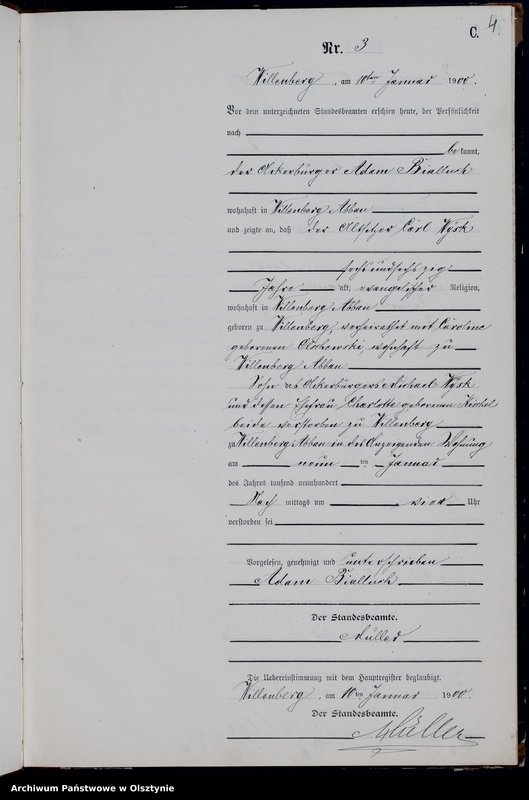 4.
C.
Nr. 3
Willenberg, am 10ten Januar 1900.
Vor dem unterzeichneten Standesbeamten erschien heute, der Persönlichkeit
nach
be kannt,
der Ackerbürger Adam Bialluch
wohnhaft in Willenberg Abbau
und zeigte an, daß der Altsitzer Carl Wysk
sechsundsechszig
Jahre alt, evangelischer Religion,
wohnhaft in Willenberg Abbau
geboren zu Willenberg, verheirathet mit Caroline
geborenen wohnhaft zu
Willenberg Abbau
Sohn des Ackerbürgers Michael Wysk
und dessen Ehefrau Charlotte geborenen
beide verstorben zu Willenberg
zu Willenberg Abbau in des Anzeigenden Wohnung
am neun ten Januar
des Jahres tausend neunhundert
Nach mittags um vier Uhr
verstorben sei
Vorgelesen, genehmigt und unterschrieben
Adam Bialluch
Der Standesbeamte.
Müller
Die Uebereinstimmung mit dem Hauptregister beglaubigt.
Willenberg, am 10ten Januar 1900.
Der Standesbeamte.
Müller
Archiwum Państwowe w Olsztynie